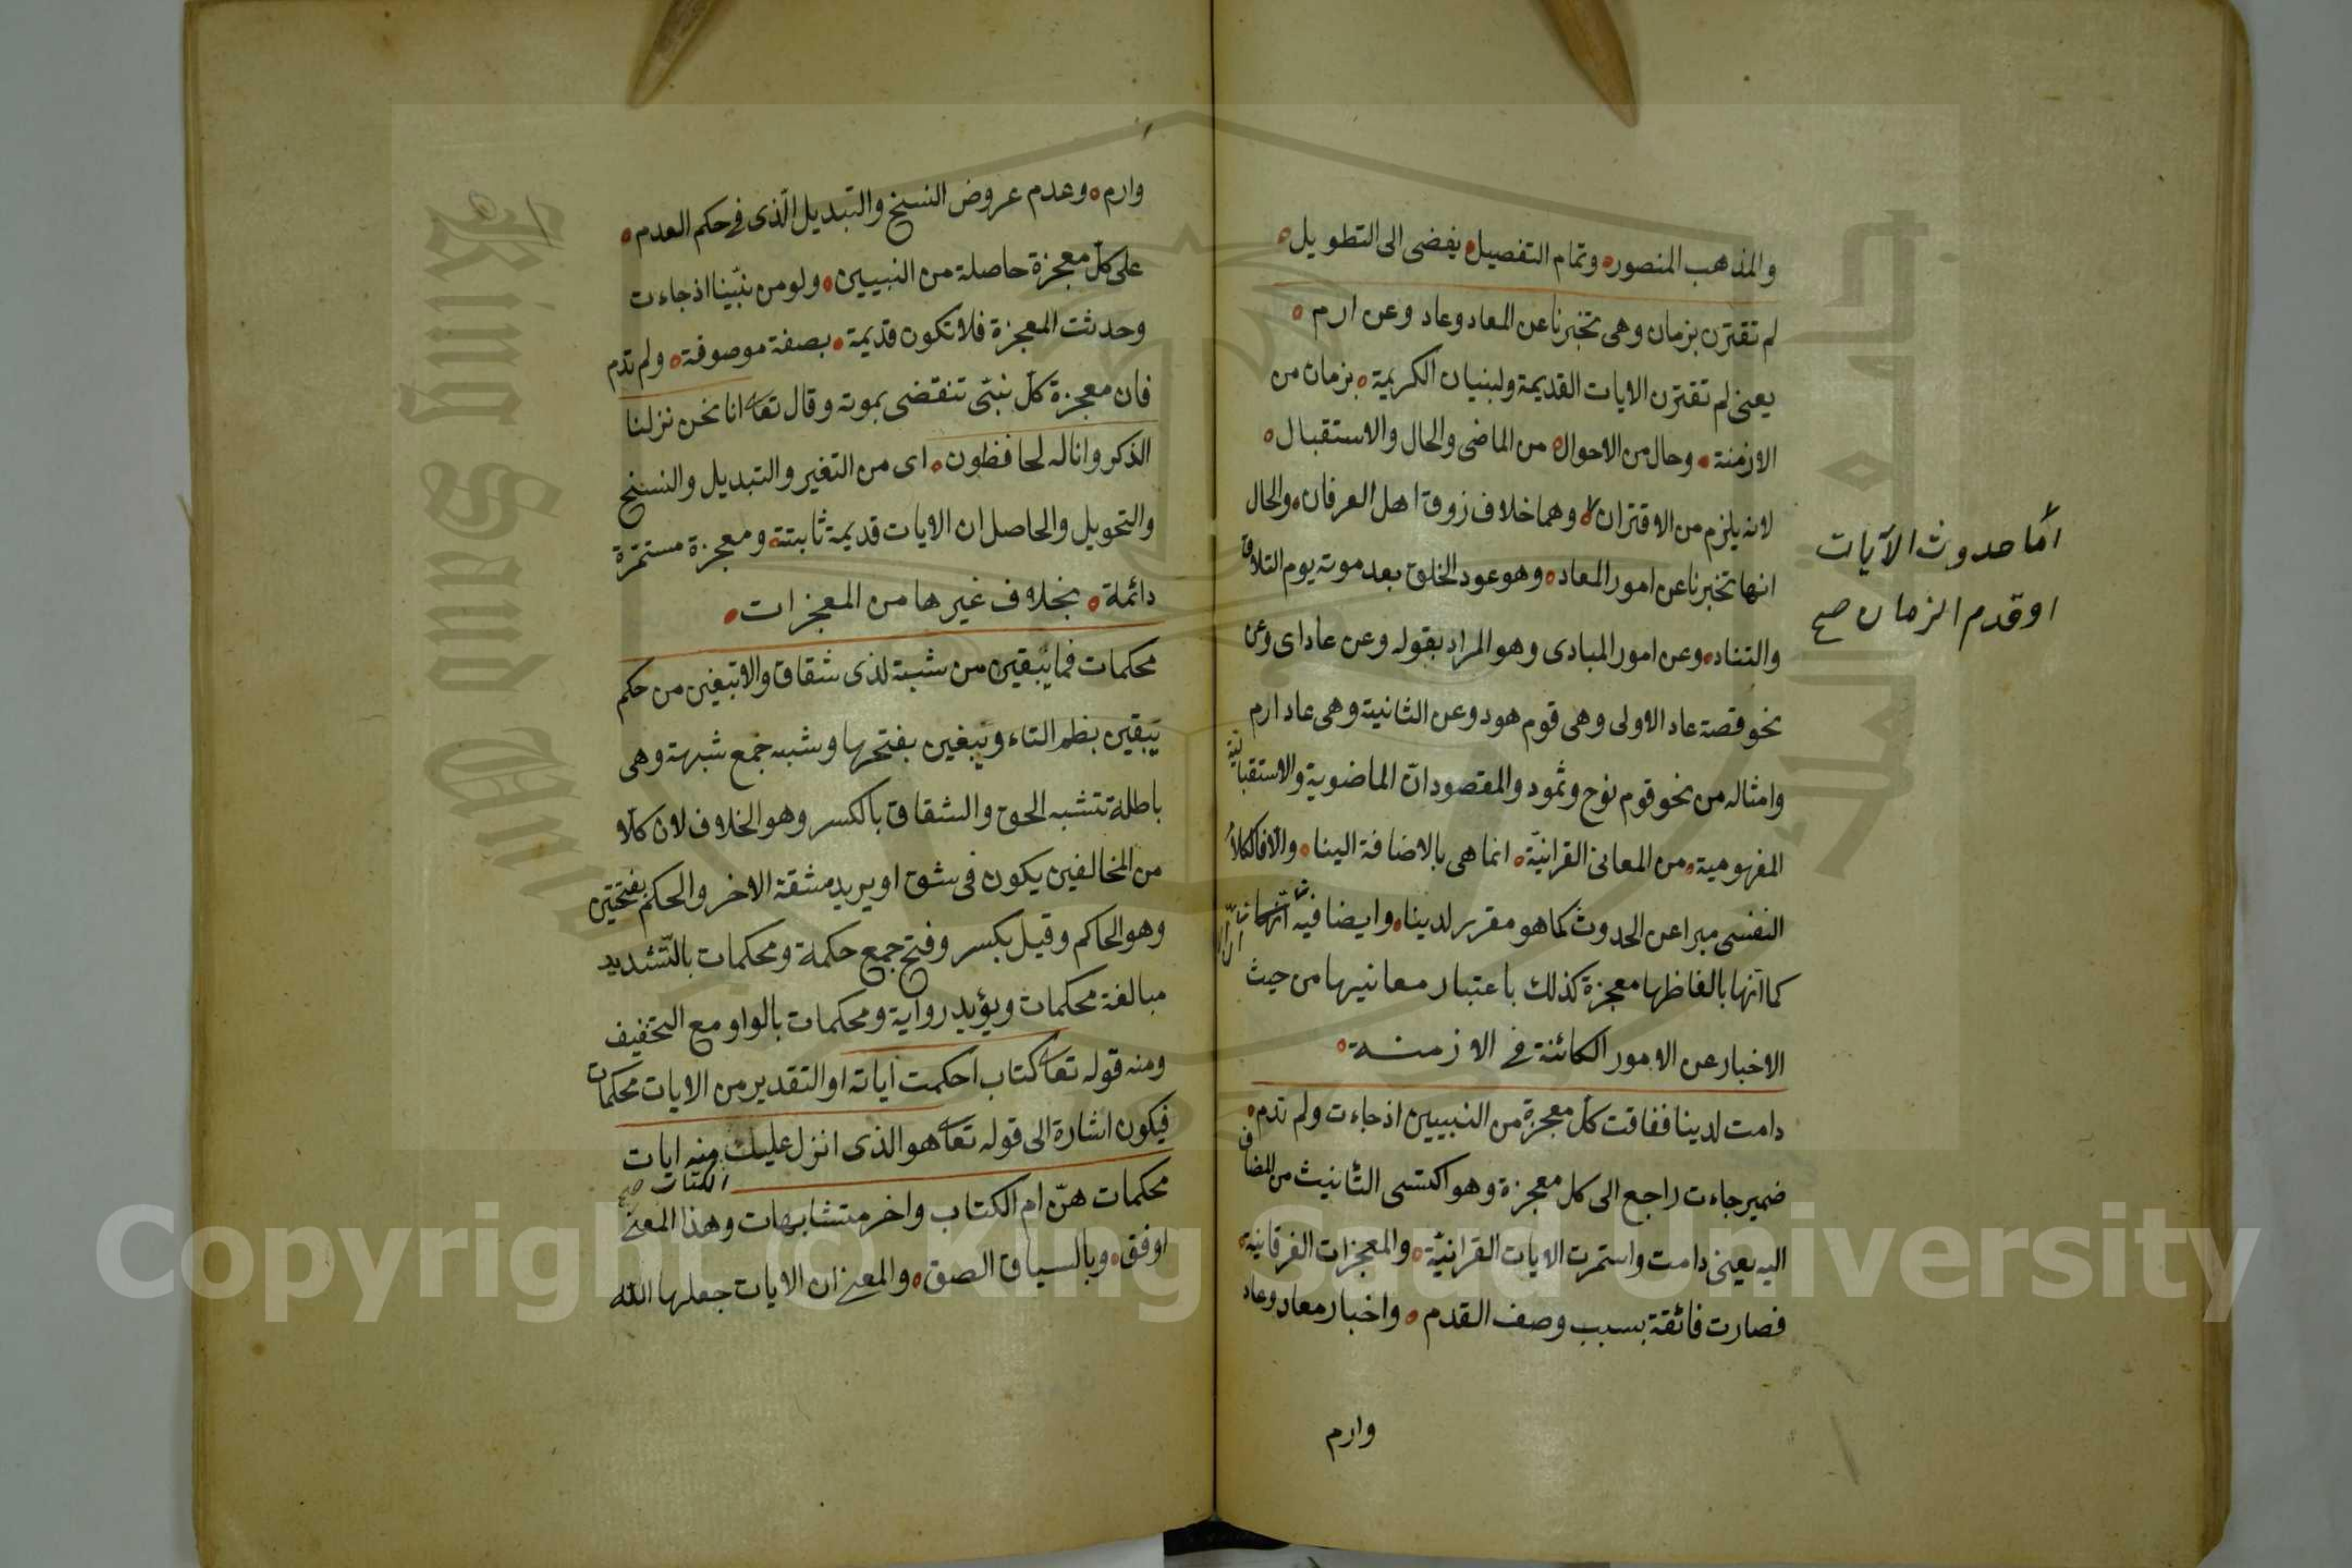 والمذهب المنصور وتمام التفصيل يفضى الى التطويل
لم تقترن بزمان وهى تخبرنا عن المعاد وعاد وعن ارم
يعنى لم تقترن الايات القديمة ولبنيان الكريمة بزمان من
الازمنة وحال من الاحوال من الماضى والحال والاستقبال
لانه يلزم من الاقتران وهما خلاف زوق اهل العرفان والحال
اما حدوث الآيات
او قدم الزمان صح
انها تخبرنا عن امور المعاد وهو عود الخلق بعد موته يوم التلاق
والتناد وعن امور المبادى وهو المراد بقوله وعن عاد اى وعن
نحو قصة عاد الاولى وهى قوم هود وعن الثانية وهى عاد ارم
وامثاله من نحو قوم نوح وثمود والمقصود ان الماضوية والاستقبالية
المفهومية من المعانى القرانية انما هى بالاضافة الينا والا فالكلام
النفسى مبرا عن الحدوث كما هو مقرر لدينا وايضا فيه
كما انها بالفاظها معجزة كذلك باعتبار معانيها من حيث
الاخبار عن الامور الكائنة فى الازمنة
دامت لدينا ففاقت كل معجزة من النبيين اذ جاءت ولم تدم
ضمير جاءت راجع الى كل معجزة وهو اكتسى التانيث من المضاف
اليه يعنى دامت واستمرت الايات القرانية والمعجزات الفرقانية
فصارت فائقة بسبب وصف القدم واخبار معاد وعاد
وارم
وارم وعدم عروض النسخ والتبديل الذى فى حكم العدم
على كل معجزة حاصلة من النبيين ولو من نبينا اذ جاءت
وحدثت المعجزة فلا تكون قديمة بصفة موصوفة ولم تدم
فان معجزة كل نبى تنقضى بموته وقال تعا انا نحن نزلنا
الذكر وانا له لحافظون اى من التغير والتبديل والنسخ
والتحويل والحاصل ان الايات قديمة ثابتة ومعجزة مستمرة
دائمة بخلاف غيرها من المعجزات
محكمات فما يبقين من شبه لذى شقاق والاتبغين من حكم
تبقين بظم التاء وتبغين بفتحها وشبه جمع شبهة وهى
باطلة تتشبه الحق والشقاق بالكسر وهو الخلاف لان كلا
من المخالفين يكون فى شق او يريد مشقة الاخر والحكم بفتحتين
وهو الحاكم وقيل بكسر وفتح جمع حكمة ومحكمات بالتشديد
مبالغة محكمات ويؤيد رواية ومحكمات بالواو مع التخفيف
ومنه قوله تعا كتاب احكمت اياته او التقدير من الايات محكمات
فيكون اشارة الى قوله تعا هو الذى انزل عليك منه ايات
الكتاب صح
محكمات هن ام الكتاب واخر متشابهات وهذا المعنى
اوفق وبالسياق الصق والمعنى ان الايات جعلها الله
Copyright © King Saud University
King Saud